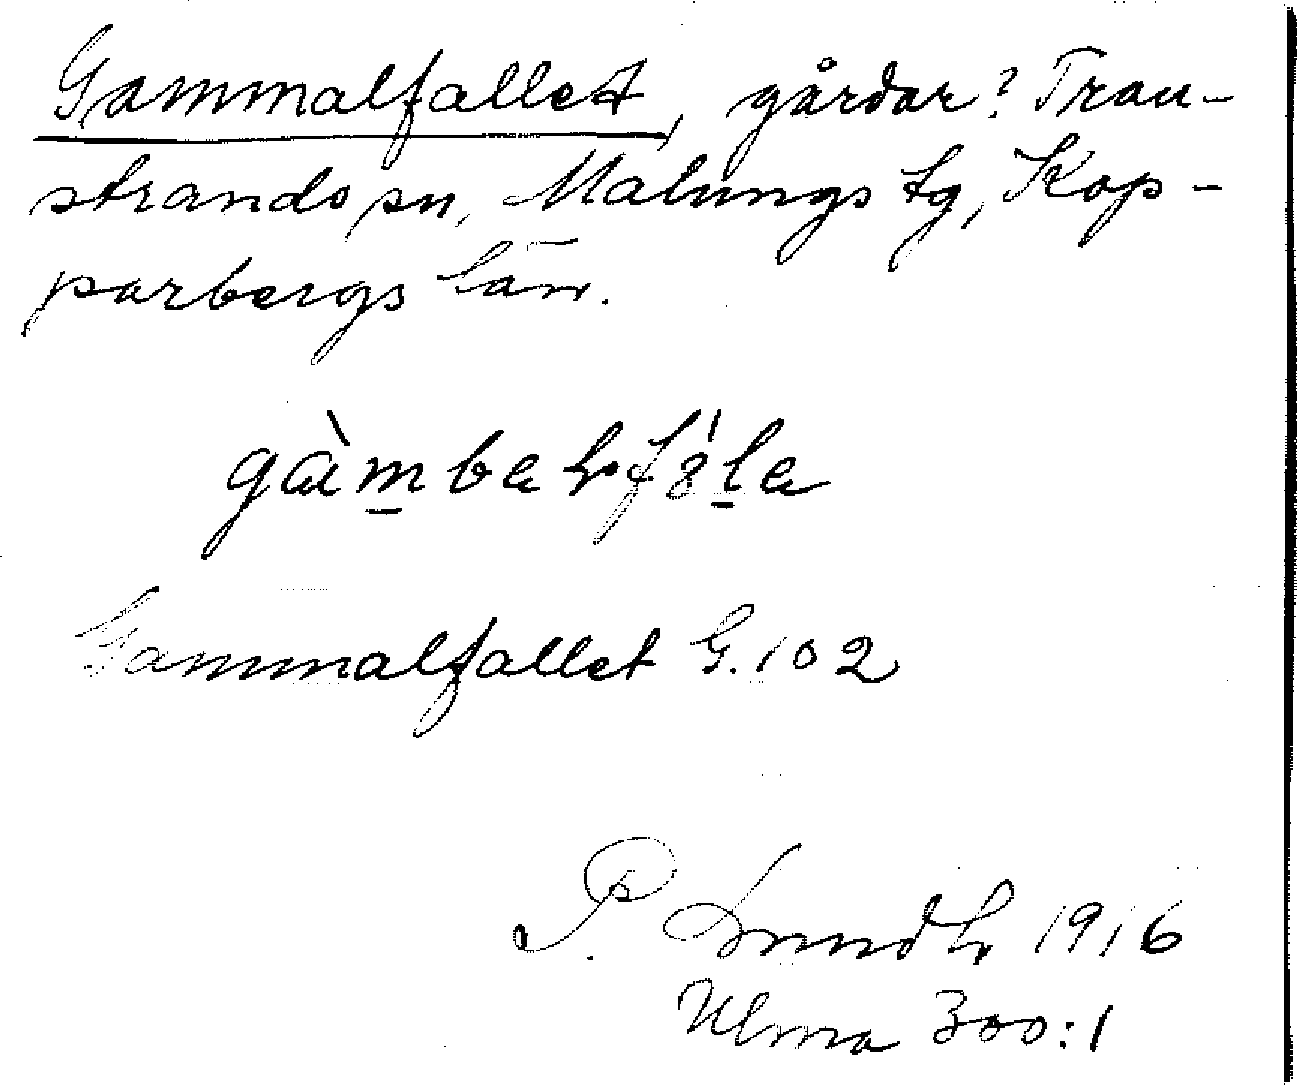 Gammalfallet, gårdar? Tran-
strands sn, Malungs tg, Kop-
parbergs län.
Gammalfallet G. 102
P. Lundh 1916
Ulma 300:1